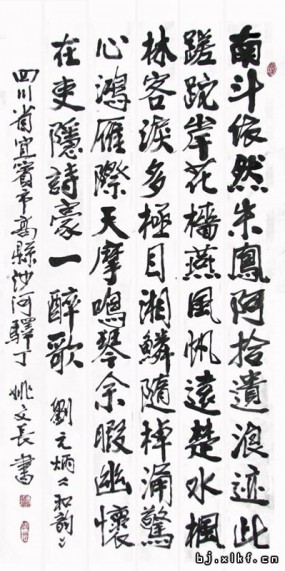 南斗依然朱鳳阿拾遺浪迹此
蹉跎岸花檣燕風帆遠楚水楓
林客淚多極目湘鱗隨棹涌驚
心鴻雁際天摩鳴琴余暇幽懷
在吏隱詩豪一醉歌 劉元炳《和韵》
四川省宜賓市高縣沙河驛丁 姚文長書
bj.xlkf.cn